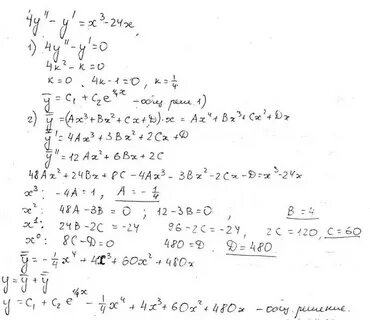 4y'' - y' = x³ - 24x,
1) 4y'' - y' = 0
4k² - k = 0
k = 0 4k - 1 = 0, k = 1/4
y̅ = C₁ + C₂ e^(1/4 x) - общ. реш. 1)
2) y̿ = (Ax³ + Bx² + Cx + D)·x = Ax⁴ + Bx³ + Cx² + Dx
y̿' = 4Ax³ + 3Bx² + 2Cx + D
y̿'' = 12Ax² + 6Bx + 2C
48Ax² + 24Bx + 8C - 4Ax³ - 3Bx² - 2Cx - D = x³ - 24x
x³: -4A = 1, A = -1/4
x²: 48A - 3B = 0 ; 12 - 3B = 0, B = 4
x¹: 24B - 2C = -24 96 - 2C = -24, 2C = 120, C = 60
x⁰: 8C - D = 0 480 = D. D = 480
y̿ = -1/4 x⁴ + 4x³ + 60x² + 480x
y = y̅ + y̿
y = C₁ + C₂ e^(1/4 x) - 1/4 x⁴ + 4x³ + 60x² + 480x - общ. решение.